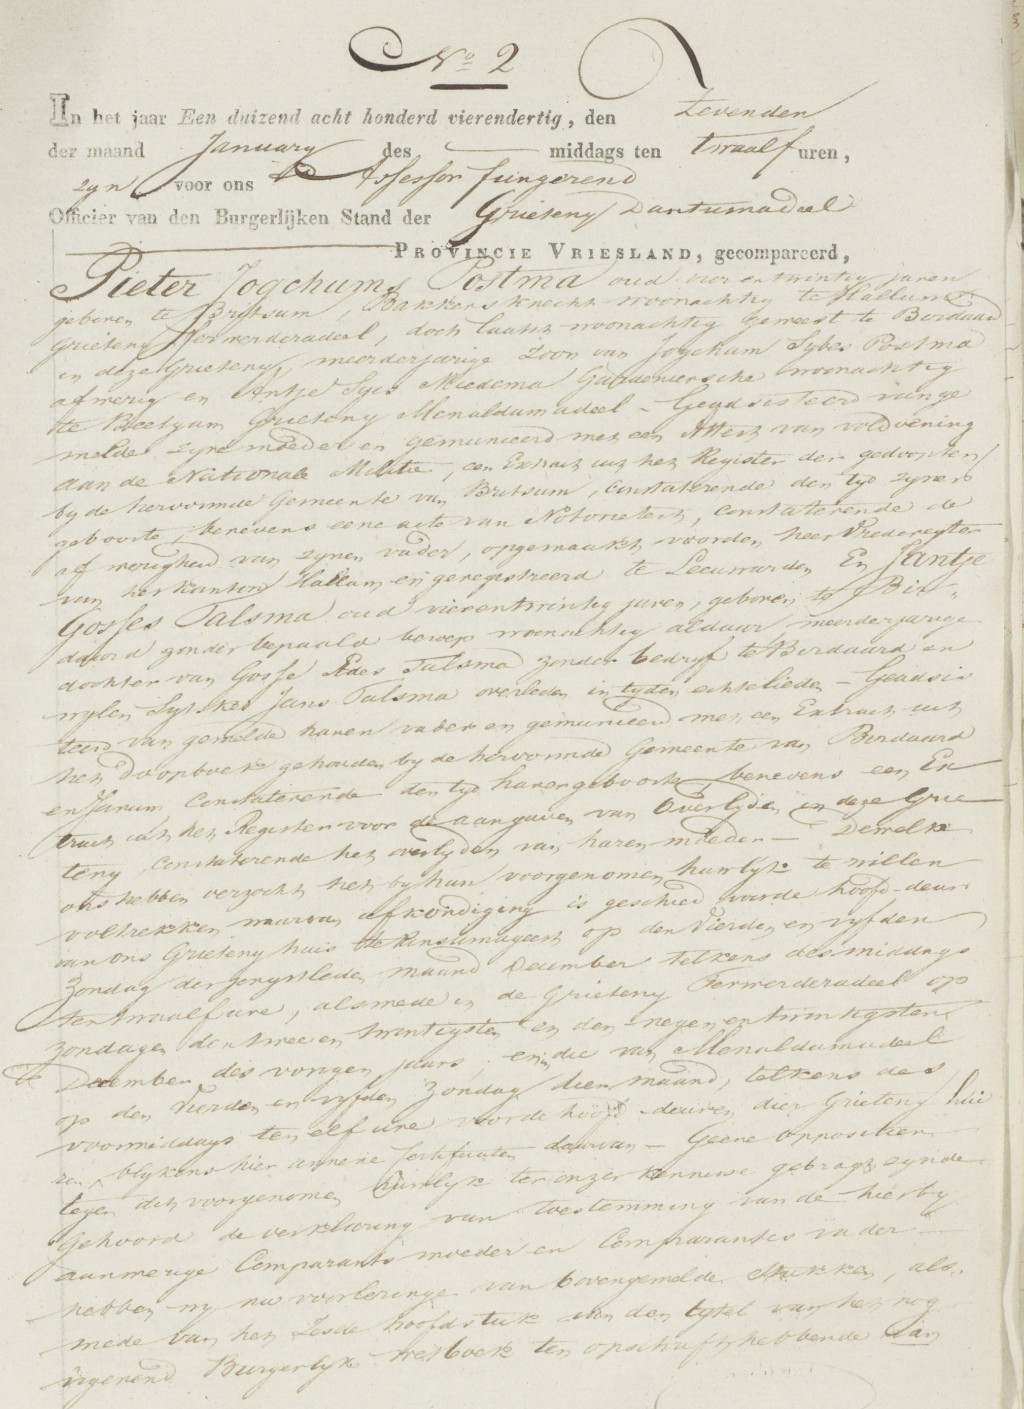 No 2
In het jaar Een duizend acht honderd vierendertig, den Zevenden
der maand January des middags ten twaalf uren,
zyn voor ons Assessor fungerend
Officier van den Burgerlijken Stand der Grieteny Dantumadeel
PROVINCIE VRIESLAND, gecompareerd,
Pieter Jogchums Postma oud vier en twintig jaren
geboren te Britsum, Bakkersknecht woonachtig te Hallum
Grieteny Ferwerderadeel, doch laatst woonachtig geweest te Birdaard
in deze Grieteny, meerderjarige Zoon van Jogchum Sybes Postma
afwezig en Antje Syes Miedema Gardeniersche woonachtig
te Beetgum Grieteny Menaldumadeel – Geadsisteerd van ge
melde zyne moeder en gemunieerd met een Attest van voldoening
aan de Nationale Militie, een Extract uit het Register der gedoopten
by de hervormde Gemeente van Britsum, constaterende den tyd zyner
geboorte, benevens eene acte van Notorieteit, constaterende de
afwezigheid van zynen vader, opgemaakt voor den heer Vrederegter
van het kanton Hallum en geregistreerd te Leeuwarden En Jantje
Gosses Talsma oud vierentwintig jaren, geboren te Bir
daard zonder bepaald beroep woonachtig aldaar meerderjarige
dochter van Gosse Edes Talsma zonder bedryf te Birdaard en
wylen Sytske Jans Talsma overleden in tyden echtelieden – Geadsis
teerd van gemelde haren vader en gemunieerd met een Extract uit
het doopboek gehouden by de hervormde Gemeente van Birdaard
en Janum, constaterende den tyd harer geboorte, benevens een Ex
tract uit het Register voor de aangaven van Overlyden in deze Grie
teny, constaterende het overlyden van haren moeder – Dewelke
ons hebben verzocht het by hun voorgenomen huwlyk te willen
voltrekken waarvan afkondiging is geschied voor de hoofd-deur
van ons Grieteny huis te Rinsumageest op den Vierden en vyfden
Zondag der jongstleden maand December telkens des middags
ten twaalf ure, alsmede in de Grieteny Ferwerderadeel op
Zondagen den twee en twintigsten en den negen en twintigsten
December des vorigen jaars, en in die van Menaldumadeel
op den Vierden en vyfden Zondag dier maand, telkens des
voormiddags ten elf ure voor de hoofd-deuren dier Grieteny hui
zen, blykens hier annexe Certificaten daarvan – Geene oppositien
tegen dit voorgenomen huwlyk ter onzer kennisse gebragt zynde
Gehoord de verklaring van toestemming van de hierby
aanwezige Comparants moeder en Comparantes vader
hebben wy na voorlezinge van bovengemelde stukken, als
mede van het Zesde hoofdstuk van den tytel van het nog
vigerend Burgerlyk wetboek ten opschrift hebbende van